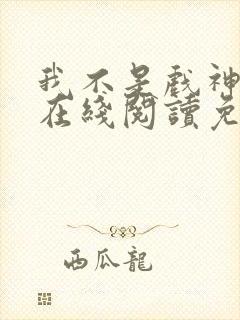 我不是戲神
在綫閱讀免
西瓜龍